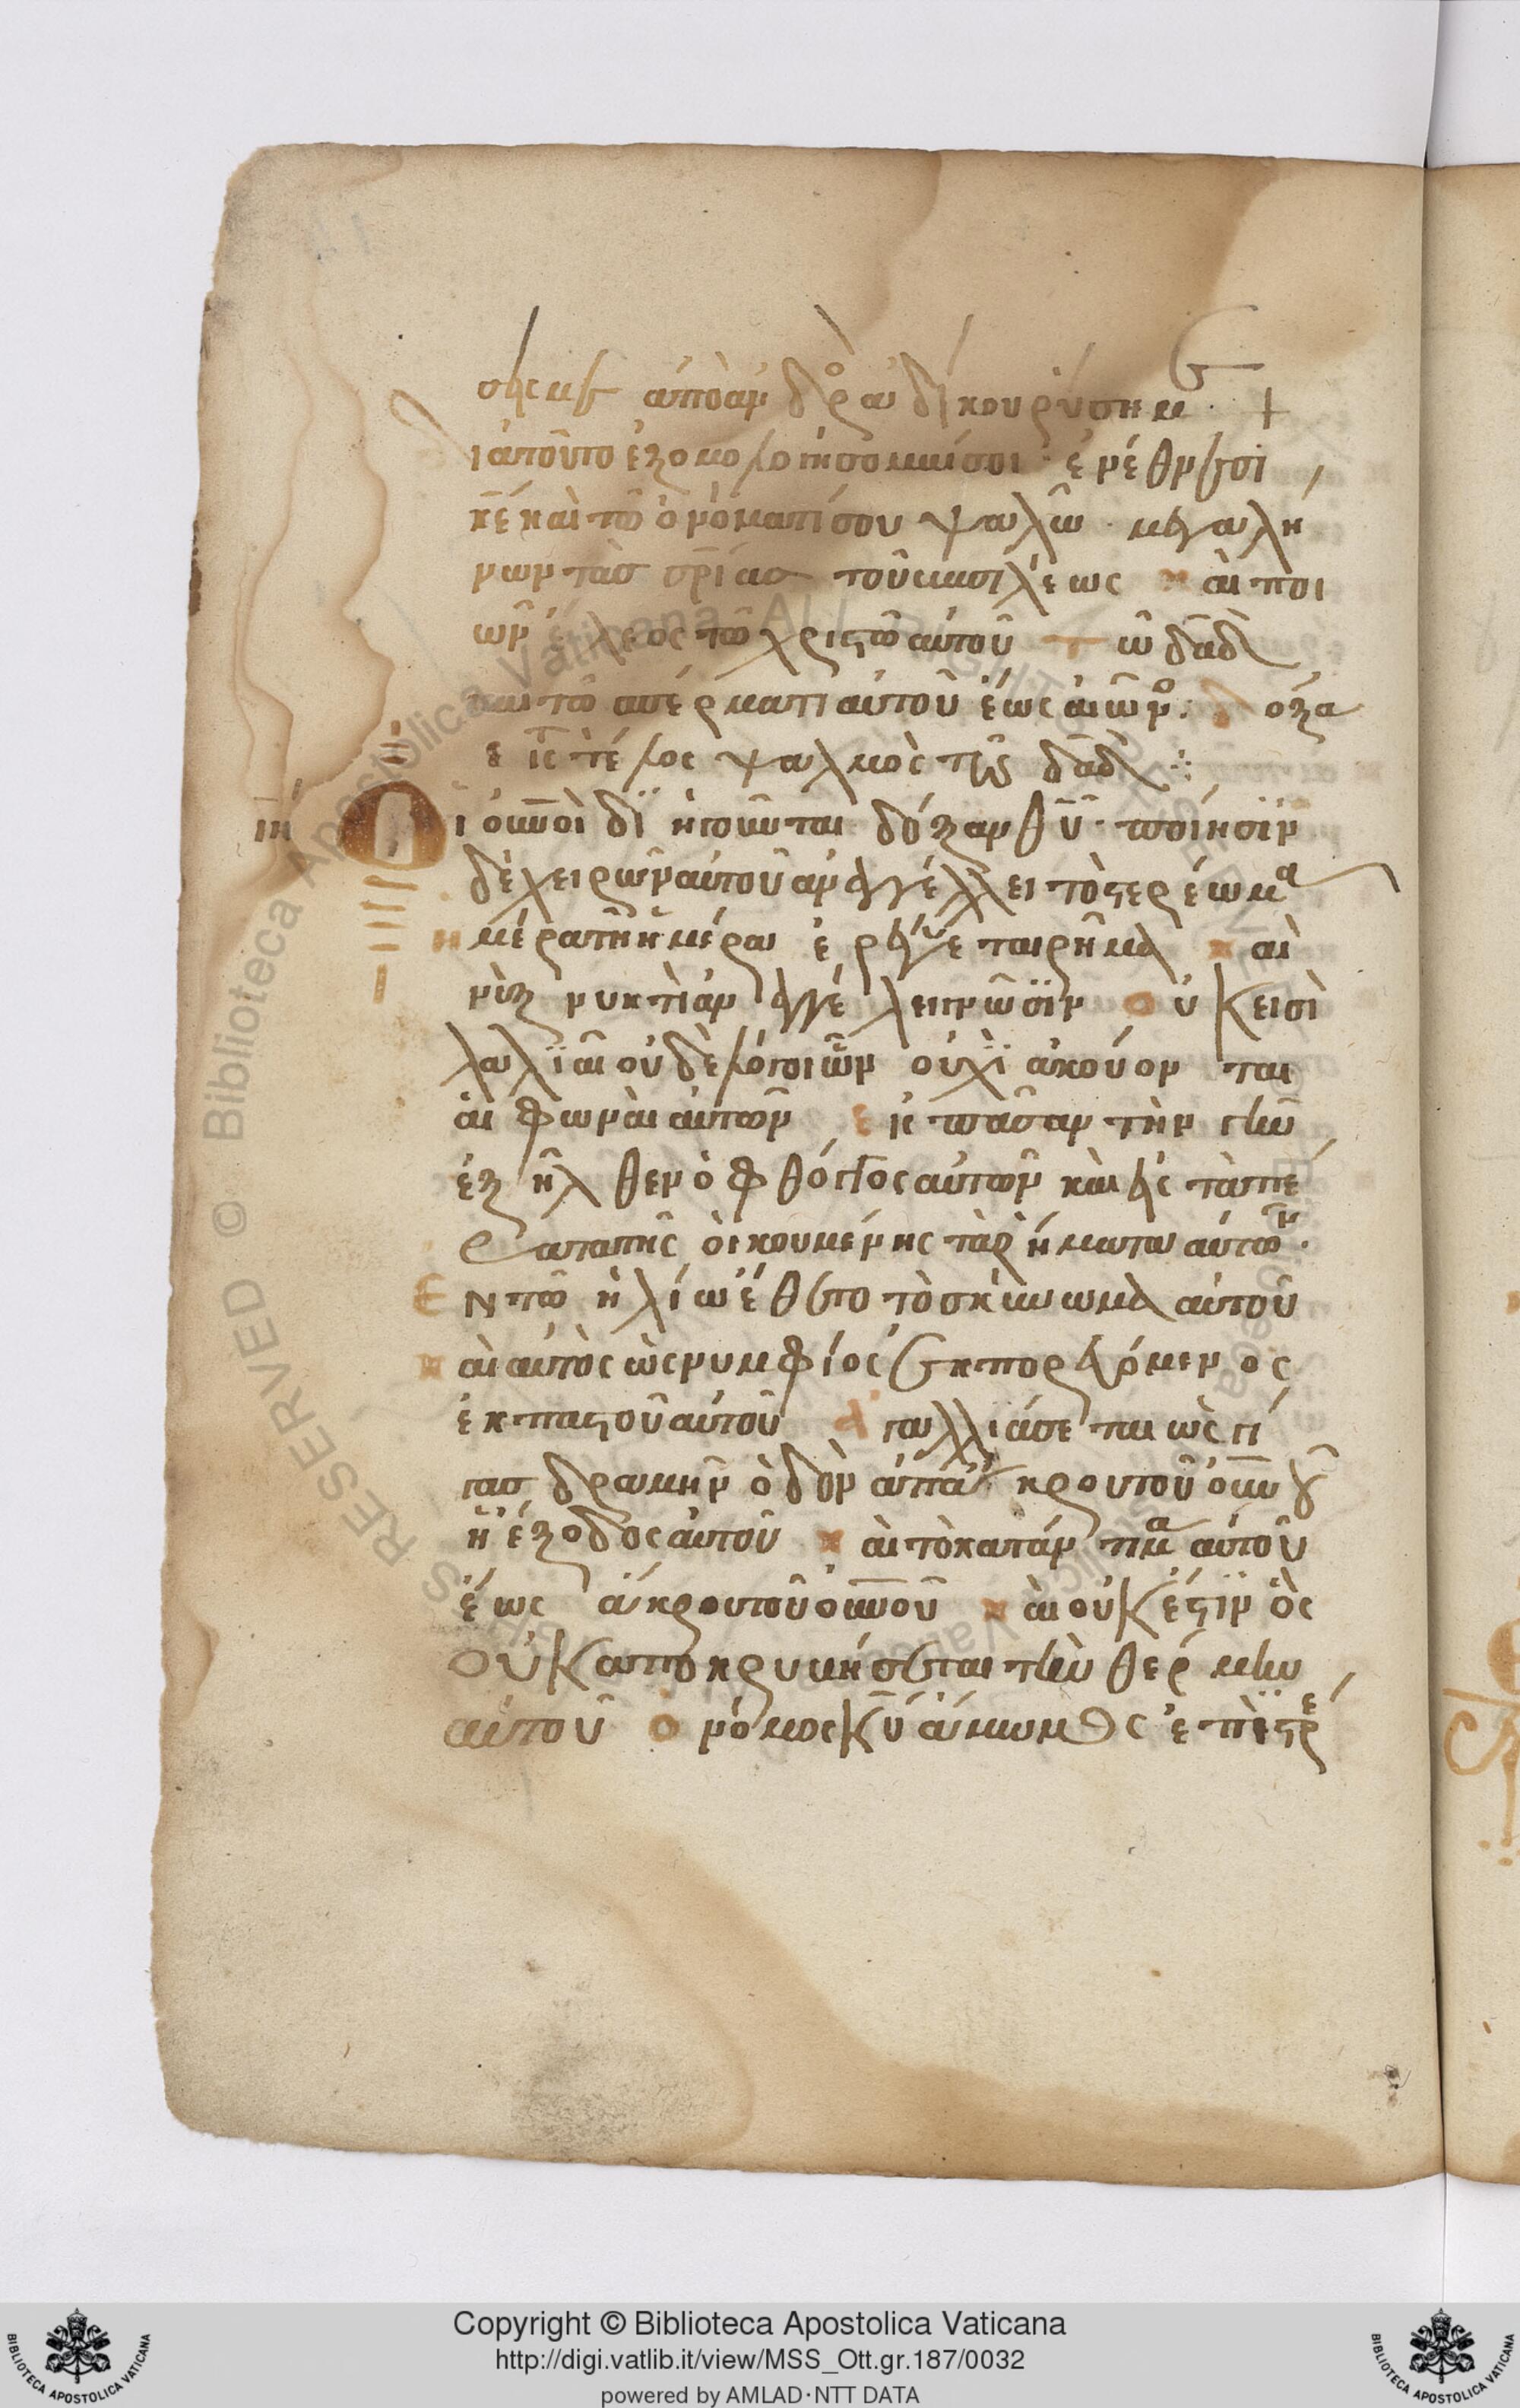 σεις με ἀπὸ ἀνδρὸς ἀδίκου ρύση με +
ιατοῦτο ἐξομολογήσομαί σοι ἐν ἔθνεσι
κ̅ε καὶ τῶ ὀνόματί σου ψαλῶ· μεγαλή
νων τὰσ σ̅ρίασ τοῦ βασιλέως καὶ ποι
ῶν ἔλεος τῶ χριστῶ αὐτοῦ τῶ δα̅δ
καὶ τῶ σπέρματι αὐτοῦ ἕως αἰῶνο. δόξα
εἰς τέλος ψαλμὸς τῶ δα̅δ
ιη Οἱ οὐ̅νοὶ διηγοῦνται δόξαν θ̅υ· ποίησιν
δὲ χειρῶν αὐτοῦ ἀναγγέλλει τὸ στερέωμα
ημέρα τῆ ἡμέρα ἐρεύγεται ρῆμα καὶ
νὺξ νυκτὶ ἀναγγέλει γνῶσιν οὐκ εισὶ
λαλιαὶ οὐδὲ λόγοι ὧν οὐχὶ ἀκούονται
αἱ φωναὶ αὐτῶν εις πᾶσαν τὴν γῆν
ἐξῆλθεν ὁ φθόγγος αὐτῶν καὶ εἰς τὰ πέ
ρατα τῆς οἰκουμένης τὰ ρήματα αὐτῶν.
ΕΝ τῶ ἡλίω ἔθετο τὸ σκήνωμα αὐτοῦ
καὶ αὐτὸς ὡς νυμφίος ἐκπορευόμενος
ἐκ παστοῦ αὐτοῦ ἀγαλλιάσεται ὡς γί
γασ δραμῆν ὁδὸν ἀπ' ἄκρου τοῦ οὐ̅νοῦ
ἡ ἔξοδος αὐτοῦ καὶ τὸ κατάντημα αὐτοῦ
ἕως ἄκρου τοῦ οὐ̅νοῦ καὶ οὐκ ἔστιν ὃς
οὐκ ἀποκρυβήσεται τὴν θέρμην
αὐτοῦ ὁ νόμος κ̅υ ἄμωμος ἐπιστρέ
Copyright © Biblioteca Apostolica Vaticana
http://digi.vatlib.it/view/MSS_Ott.gr.187/0032
powered by AMLAD·NTT DATA